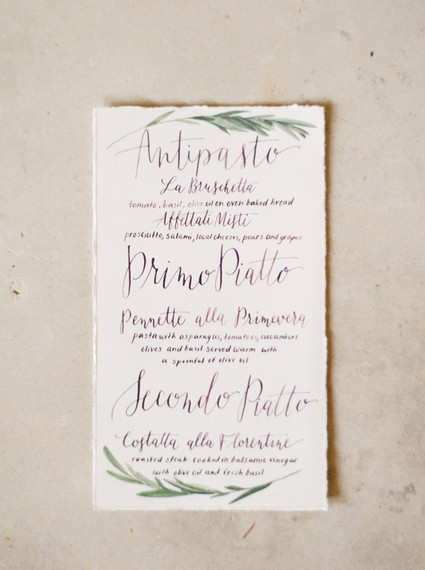 Antipasto
La Bruschetta
tomato, basil, olive oil on oven baked bread
Affettati Misti
prosciutto, salami, local cheeses, pears and grapes
Primo Piatto
Pennette alla Primevera
pasta with asparagus, tomatoes, cucumbers
olives and basil served warm with
a spoonful of olive oil
Secondo Piatto
Costatta alla Florentine
roasted steak cooked in balsamic vinegar
with olive oil and fresh basil